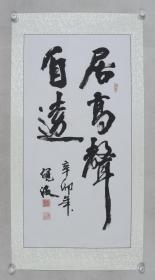 居高聲
自遠
辛卯年